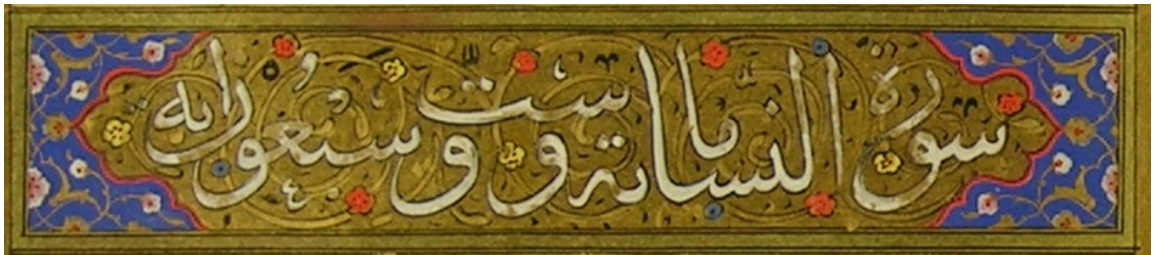 سورة النسا ماية وست وسبعون اية